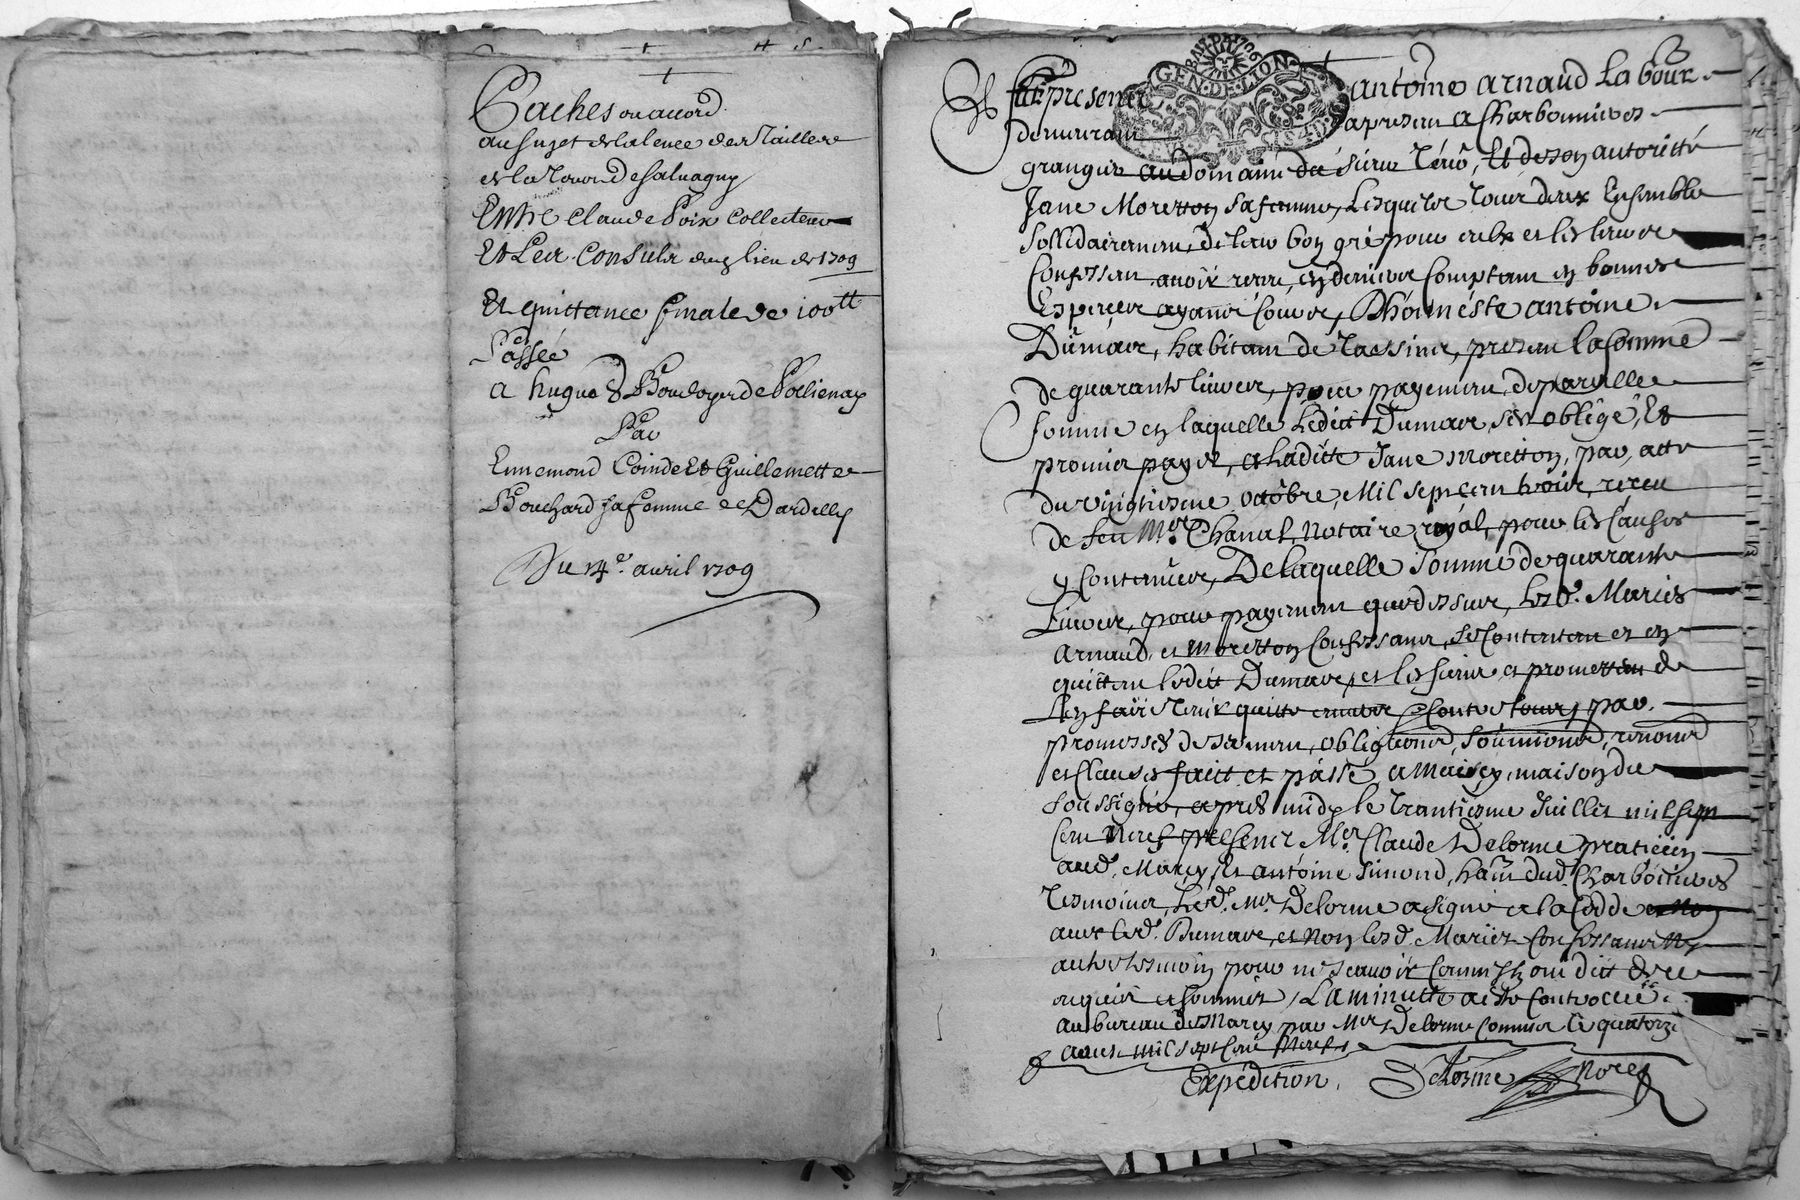 Taches ou accord
au sujet de la levée des Tailles
de la Tour de Salvagny
Entre Claude Poix Collecteur
Et Les Consuls dud lieu de 1709
Et quittance finale de 100 tt
Passée
a hugue Boudoyer de Pollienay
Par
Ennemond Coinde Et Guillemette
Bouchard sa femme de Dardilly
Du 14e. avril 1709
GEN·DE·LION
Fut present antoine arnaud Labour
demurant apresent a Charbonnieres
granger au domaine du sieur Et de son autoritté
Jane Moretton sa femme, Lesquels tous deux Ensemble
sollidairement de leur bon gré pour eulx et les leurs
Confessent avoir receu, en deniers Comptant en bonnes
Espesses ayant Cours, D'honneste antoine
Dumare, habitant de Tassins, present la somme
de quarante livres, pour payement de pareille
somme en laquelle Ledict Dumare s'est obligé, Et
promis payer, a laditte Jane Moretton, par acte
du vingtiesme octobre, Mil sept cent trois, receu
de feu Mer. Chanal Notaire royal, pour les Causes
y Contenues, De laquelle somme de quarante
Livres, pour payement que dessus, Lesd. Mariés
arnaud, et Moretton Confessants, se Contentent et en
quittent ledict Dumare, et les siens, et promettent de
L'en faire tenir quitte envers et Contre tous, par
promesses de serment, obligations, soumissions, renons
et Clauses faict et passé, a Marcy, maison du
soussigné, apres midy le trantiesme Juillet mil sept
Cent Neuf presents Mer. Claude Delorme praticien
aud. Marcy, Et antoine Simond, hant. dud. Charbonnieres
Tesmoins, Led. Mer. Delorme a signé a la Cedde
avec Led. Dumare, et Non lesd. Mariés Confessants Ny
autre tesmoin pour ne scavoir Comm'ils ont dict de ce
enquis et sommés, La minutte a esté Controllée
au bureau de Marcy par Mer Delorme Commis Le quatorze
aoust mil sept Cent Neuf
Expédition. Delorme Nore